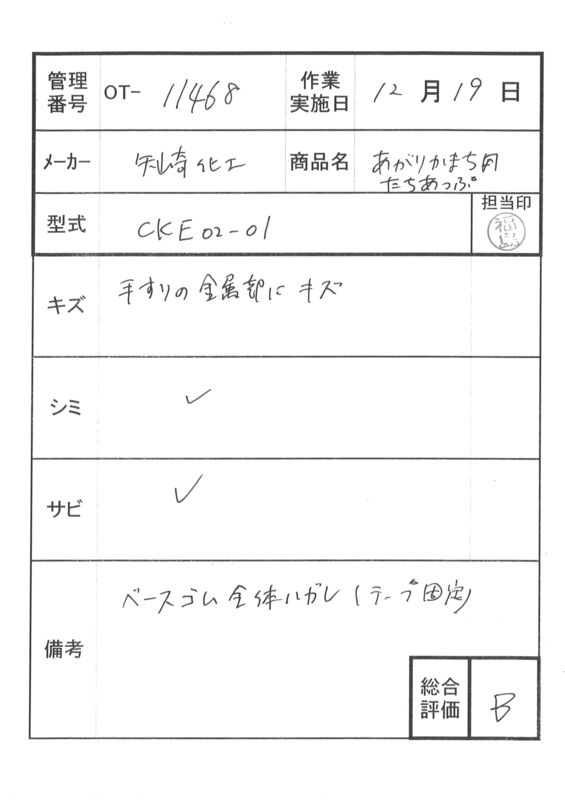 管理番号 OT- 11468 作業実施日 12月19日
メーカー 矢崎化工 商品名 あがりかまち用
たちあっぷ
型式 CKE02-01 担当印
福島
キズ 手すりの金属部にキズ
シミ ✓
サビ ✓
備考 ベースゴム全体ハガレ(テープ固定)
総合評価 B